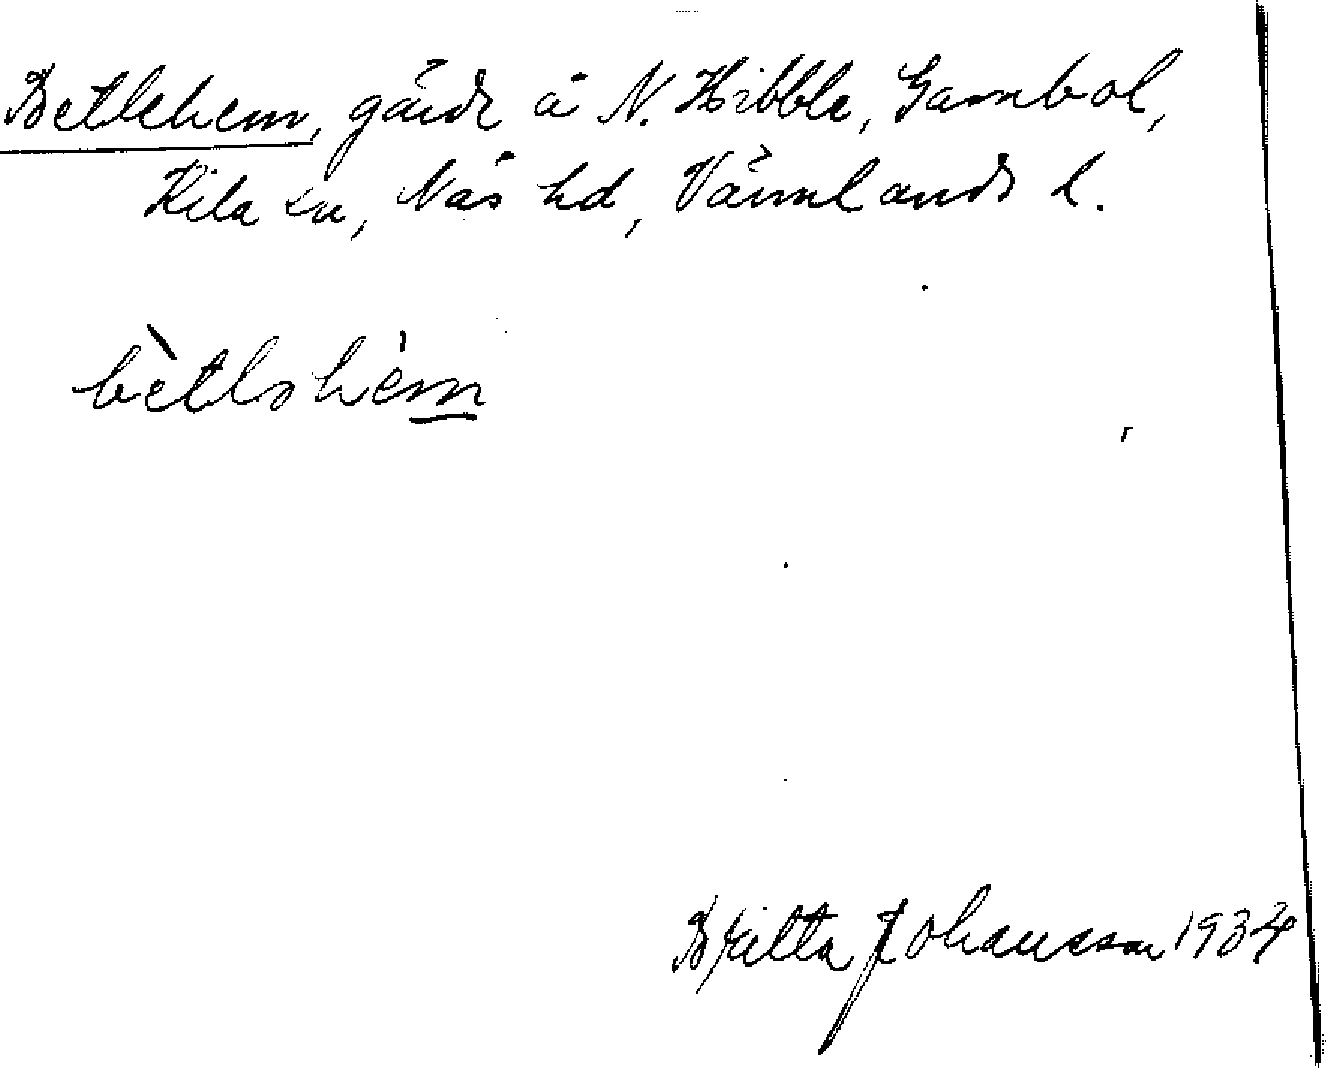 Betlehem, gärde å N. Hibble, Gambol,
Kila sn, Näs hd, Värmlands l.
bètləhém
Britta Johansson 1934